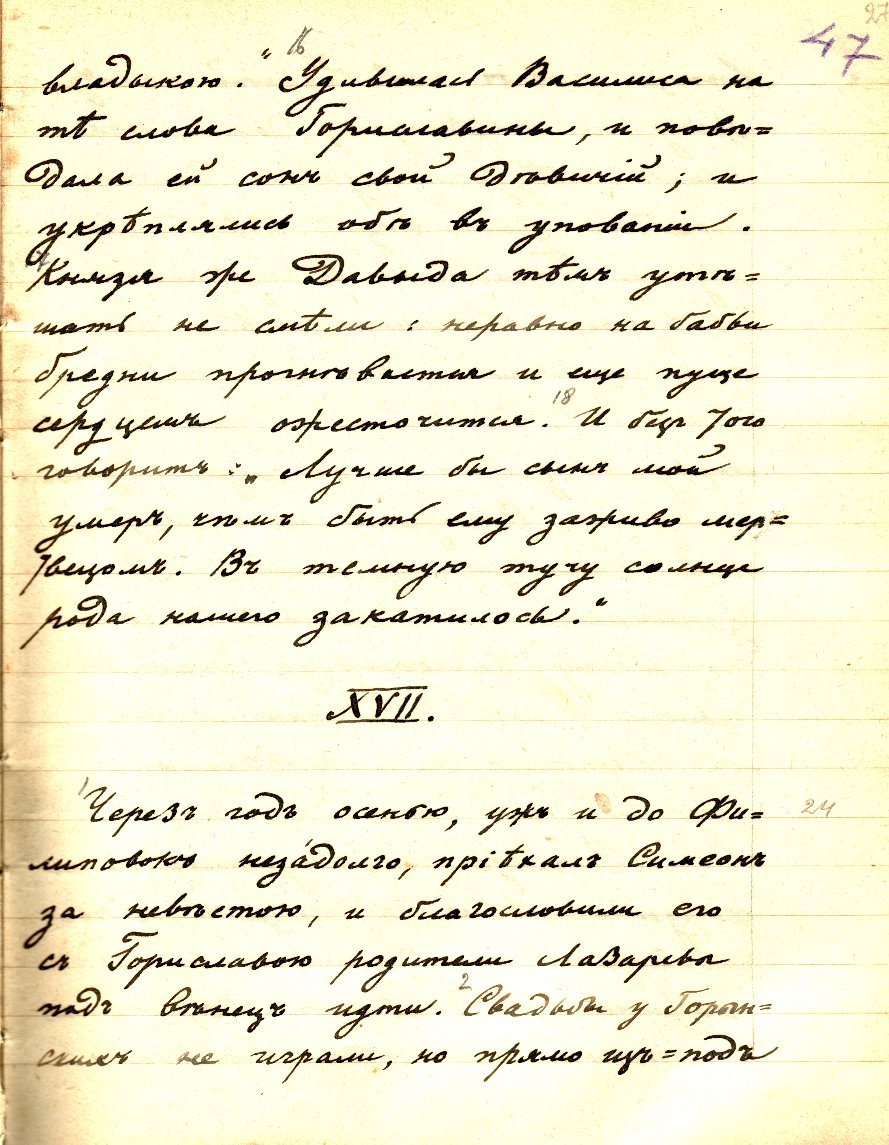 27
47
16
владыкою." Удивилась Василиса на
тѣ слова Гориславины, и повѣ=
дала ей сонъ свой дѣвичій; и
укрѣплялись обѣ въ упованіи.
17
Князя же Давыда тѣмъ утѣ=
шать не смѣли: неравно на бабьи
бредни прогнѣвается и еще пуще
сердцемъ ожесточится. 18 И безъ того
говоритъ: „Лучше бы сынъ мой
умеръ, чѣмъ быть ему заживо мер=
твецомъ. Въ темную тучу солнце
рода нашего закатилось."
XVII.
1 Черезъ годъ осенью, ужъ и до Фи= 24
липовокъ неза́долго, пріѣхалъ Симеонъ
за невѣстою, и благословили его
съ Гориславою родители Лазаревы
подъ вѣнецъ идти. 2 Свадьбы у Горын=
скихъ не играли, но прямо изъ=подъ